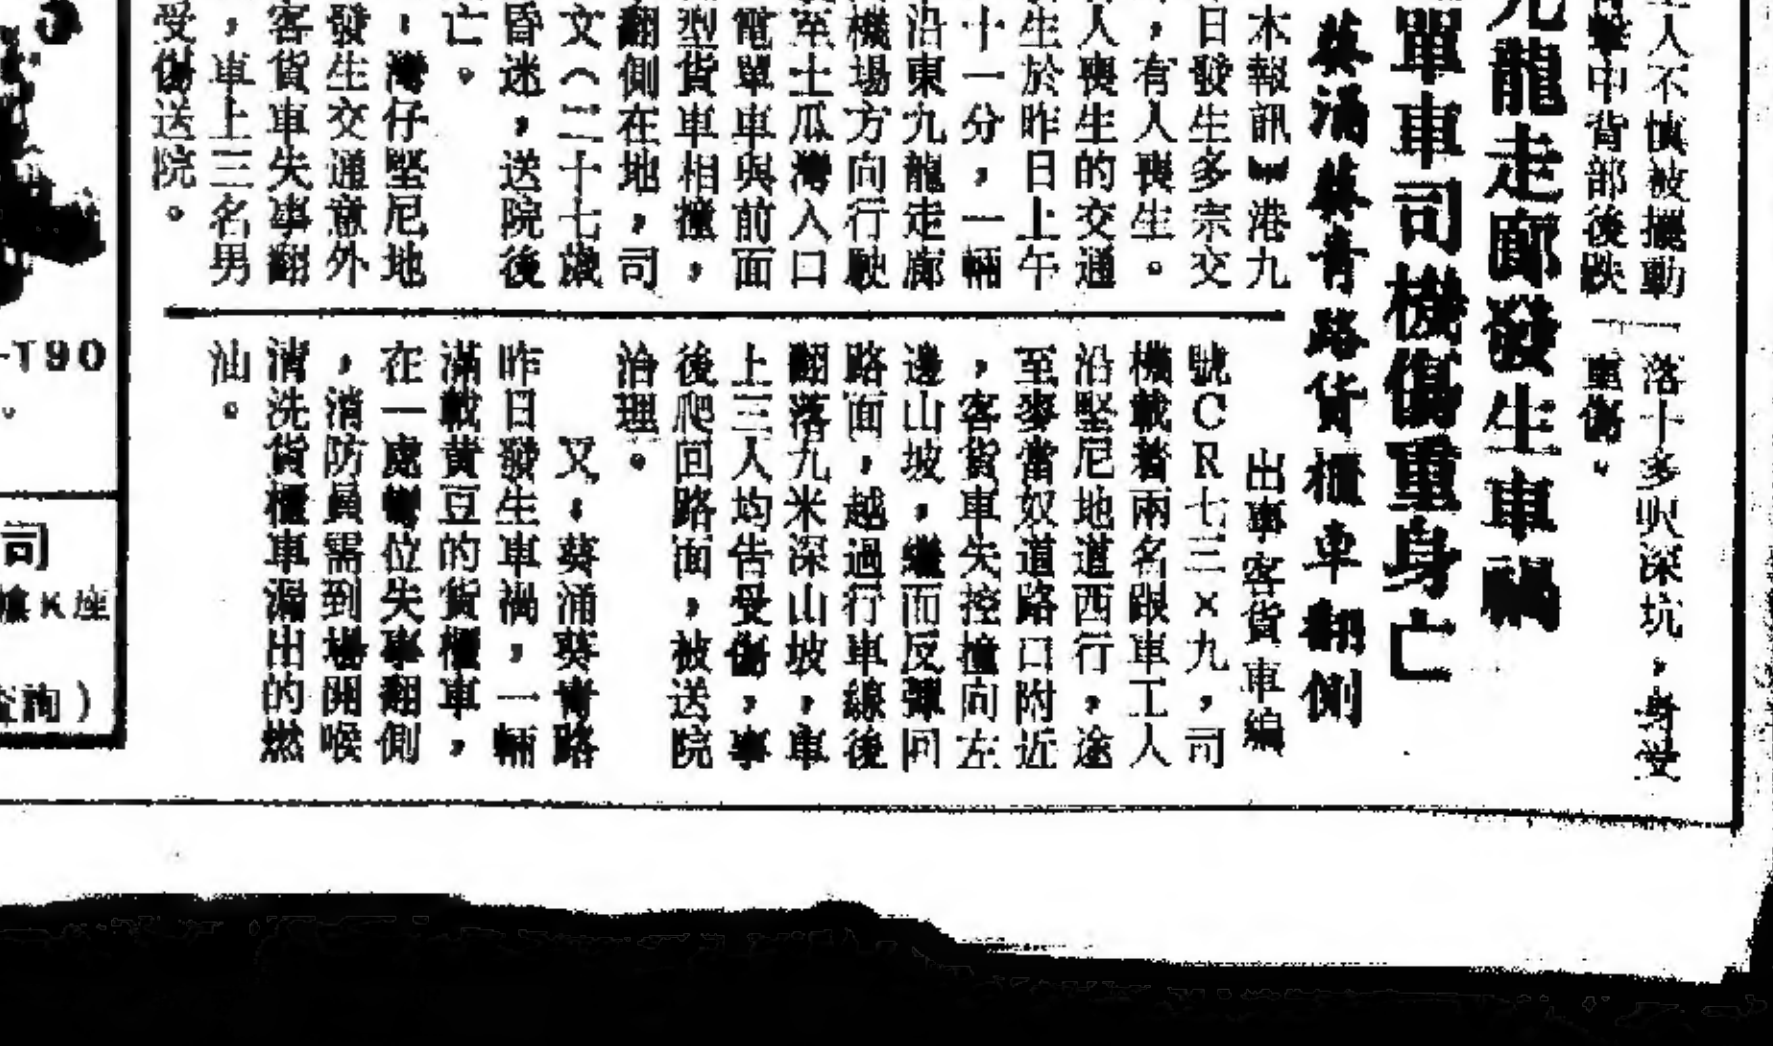 主人不慎被擺動
背擊中背部後跌
一落十多呎深坑，身受
重傷。
九龍走廊發生車禍
單車司機傷重身亡
葵涌葵青路貨櫃車翻側
本報訊】港九
日發生多宗交
，有人喪生。
人喪生的交通
生於昨日上午
十一分，一輛
沿東九龍走廊
機場方向行駛
至土瓜灣入口
電單車與前面
型貨車相撞，
翻側在地，司
文（二十七歲
昏迷，送院後
亡。
，灣仔堅尼地
發生交通意外
客貨車失事翻
，車上三名男
受傷送院。
出事客貨車編
號CR七三×九，司
機載着兩名跟車工人
沿堅尼地道西行，途
至麥當奴道路口附近
，客貨車失控撞向左
邊山坡，繼而反彈回
路面，越過行車線後
翻落九米深山坡，車
上三人均告受傷，事
後爬回路面，被送院
治理。
又，葵涌葵青路
昨日發生車禍，一輛
滿載黃豆的貨櫃車，
在一處彎位失事翻側
，消防員需到場開喉
清洗貨櫃車漏出的燃
油。
-T90
司
K座
查詢）